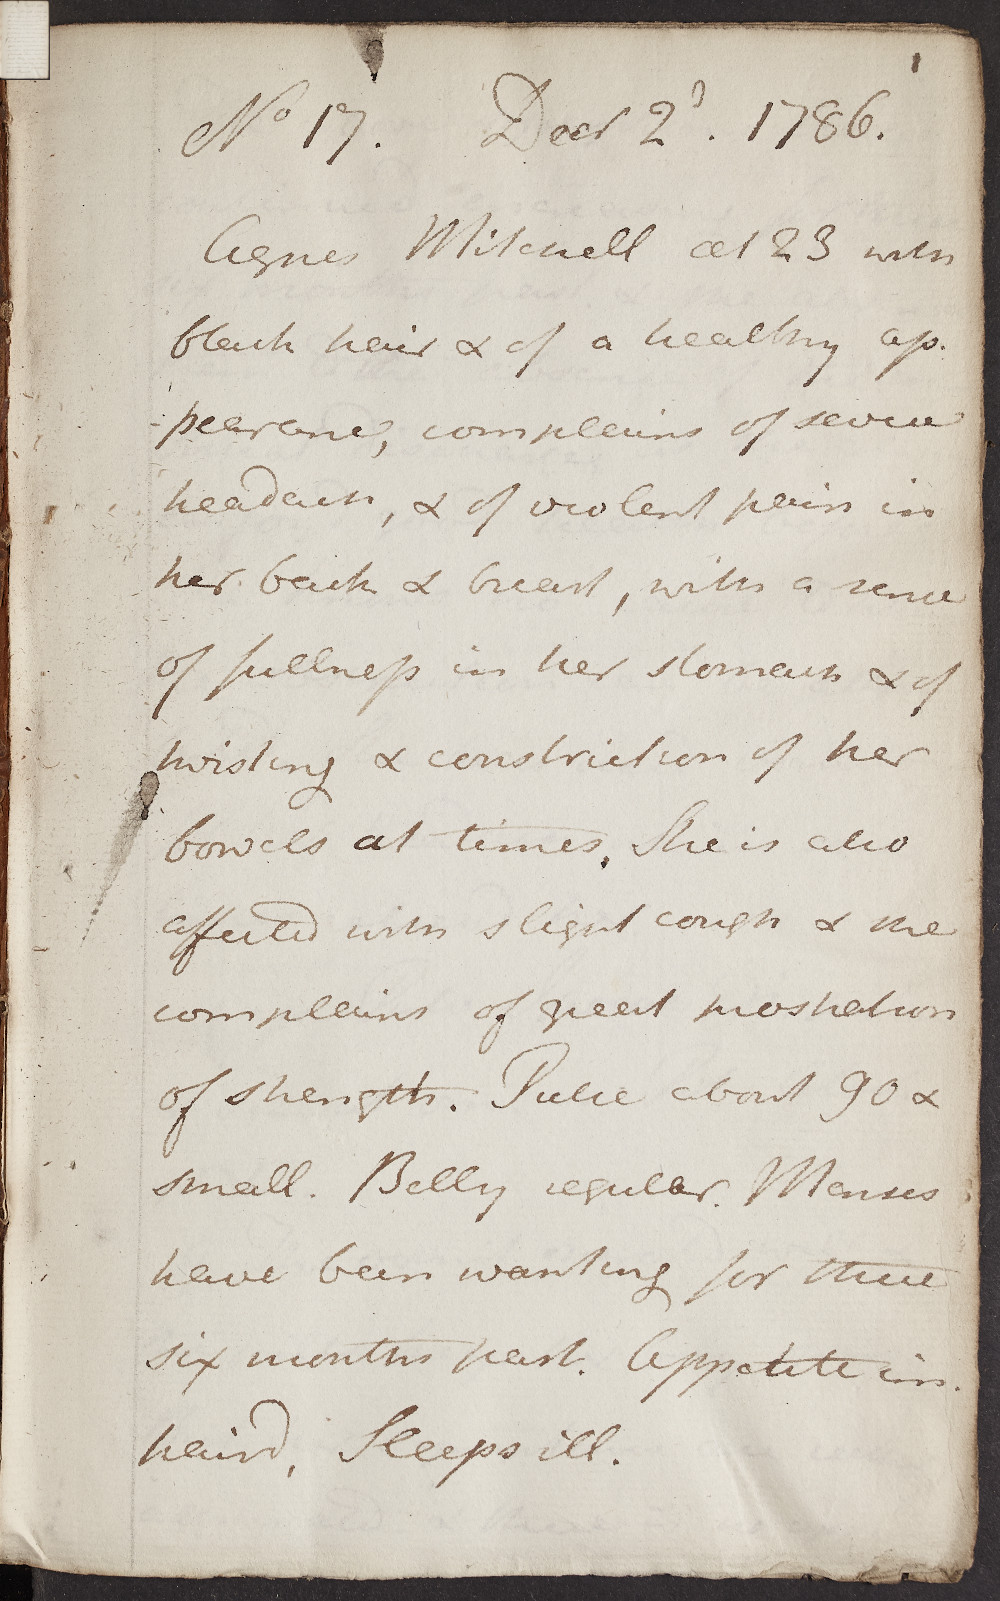 1
No 17. Decr 2d. 1786.
Agnes Mitchell æt 23 with
black hair & of a healthy ap-
-pearance, complains of severe
headach, & of violent pain in
her back & breast, with a sense
of fullness in her stomach & of
twisting & constriction of her
bowels at times. She is also
affected with slight cough & she
complains of great prostration
of strength. Pulse about 90 &
small. Belly regular. Menses
have been wanting for these
six months past. Appetite im-
paird, Sleeps ill.